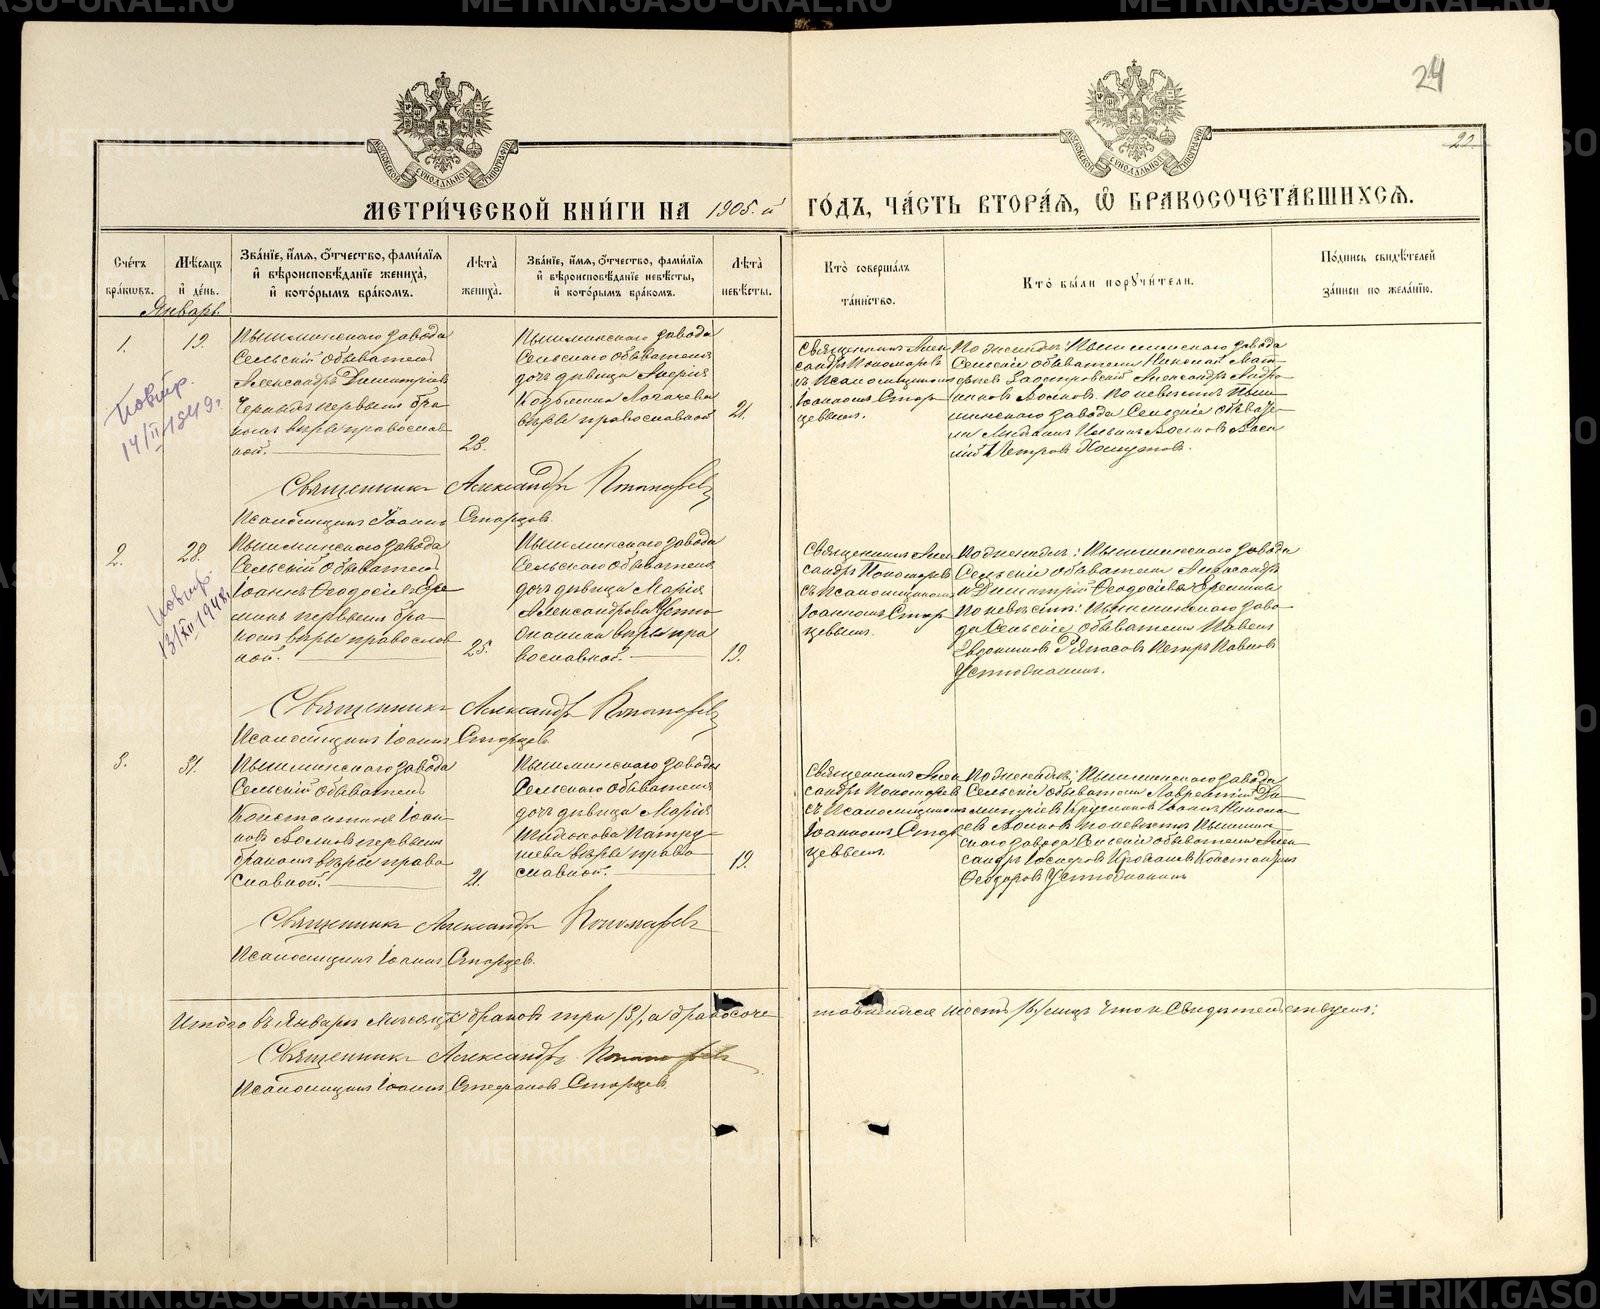 24
22.
МЕТРИ́ЧЕСКОЙ КНИ́ГИ НА 1905.й ГО́ДЪ, ЧА́СТЬ ВТОРА́Я, Ѡ БРАКОСОЧЕТА́ВШИХСЯ.
Сче́тъ бра́кѡвъ.
Мѣ́сяцъ и҆ де́нь.
Зва́нїе, и҆́мя, ѻ҆́тчество, фами́лїя и҆ вѣроисповѣ́данїе жениха̀, и҆ кото́рымъ бра́комъ.
Лѣ́та жениха̀.
Зва́нїе, и҆́мя, ѻ҆́тчество, фами́лїя и҆ вѣроисповѣ́данїе невѣ́сты, и҆ кото́рымъ бра́комъ.
Лѣ́та невѣ́сты.
Кто̀ соверша́лъ та́инство.
Кто̀ бы́ли порꙋчи́тели.
По́дпись свидѣ́телей за́писи по жела́нїю.
Январь
1.
19.
Повтор.
14/II-1949г.
Пышминскаго завода
Сельскій обыватель
Александръ Димитріевъ
первымъ бра-
комъ вѣры православ-
ной.
23.
Пышминскаго завода
Сельскаго обывателя
дочь дѣвица Марія
Козьмина Логачева
вѣры православной
21.
Священникъ Алек-
сандръ Пономаревъ
съ Псаломщикомъ
Іоанномъ Стар-
цевымъ.
По женихѣ: Пышминскаго завода
Сельскіе обыватели Николай Мат-
фіевъ Александръ Андро-
никовъ Волковъ. По невѣстѣ Пыш-
минскаго завода Сельскіе обывате-
ли Волковъ Васи-
лій Петровъ Хомутовъ.
Священникъ Александръ Пономаревъ
Псаломщикъ Іоаннъ Старцовъ
2.
28.
Повтор.
13/XII-1948г.
Пышминскаго завода
Сельскій обыватель
Іоаннъ Ѳеодосіевъ Ере-
минъ первымъ бра-
комъ вѣры православ-
ной.
25.
Пышминскаго завода
Сельскаго обывателя
дочь дѣвица Марія
Александрова Устю-
жанина вѣры пра-
вославной.
19.
Священникъ Алек-
сандръ Пономаревъ
съ Псаломщикомъ
Іоанномъ Стар-
цевымъ.
По женихѣ: Пышминскаго завода
Сельскіе обыватели Александръ
и Димитрій Ѳеодосіевы Еремины
По невѣстѣ: Пышминскаго заво-
да Сельскіе обыватели Павелъ
Евдокимовъ Петръ Павловъ
Устюжанинъ.
Священникъ Александръ Пономаревъ
Псаломщикъ Іоаннъ Старцевъ
3.
31.
Пышминскаго завода
Сельскій обыватель
Константинъ Іоан-
новъ Волковъ первымъ
бракомъ вѣры право-
славной.
21.
Пышминскаго завода
Сельскаго обывателя
дочь дѣвица Марія
Патру-
шева вѣры право-
славной.
19.
Священникъ Алек-
сандръ Пономаревъ
съ Псаломщикомъ
Іоанномъ Стар-
цевымъ.
По женихѣ: Пышминскаго завода
Сельскіе обыватели Лаврентій Ди-
митріевъ Іоаннъ Никола-
евъ Волковъ по невѣстѣ Пышмин-
скаго завода Сельскіе обыватели Алек-
сандръ Константинъ
Ѳеодоровъ Устюжанинъ
Священникъ Александръ Пономаревъ
Псаломщикъ Іоаннъ Старцев.
Итого въ Январѣ Мѣсяцѣ браковъ три /3/, а бракосоче-
тавшихся шесть /6/ лицъ что и Свидѣтельствуемъ:
Священникъ Александръ Пономаревъ
Псаломщикъ Іоаннъ Стефановъ Старцев